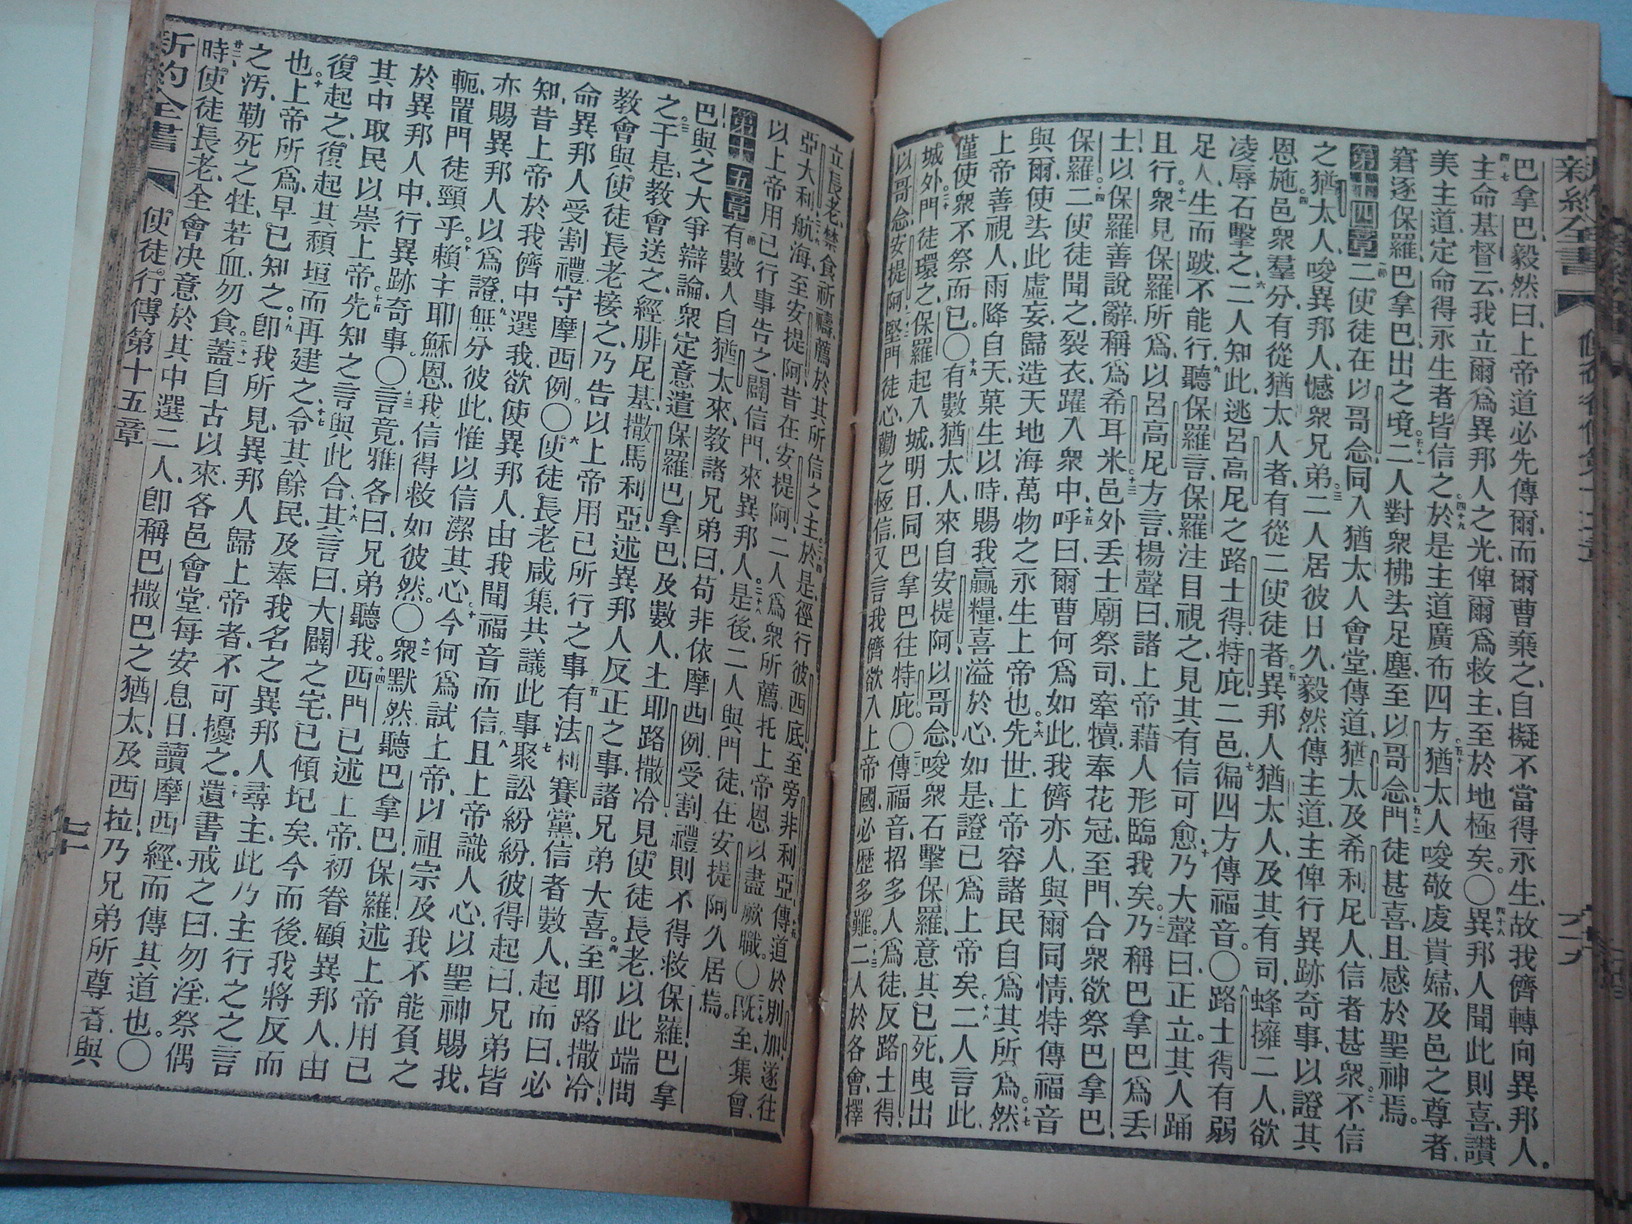 巴拿巴毅然曰上帝道必先傳爾而爾曹棄之自擬不當得永生故我儕轉向異邦人
主命基督云我立爾為異邦人之光俾爾為救主至於地極矣〇異邦人聞此則喜讚
美主道定命得永生者皆信之於是主道廣布四方猶太人唆敬虔貴婦及邑之尊者
窘逐保羅巴拿巴出之境二人對衆拂去足塵至以哥念門徒甚喜且感於聖神焉
第十四章二使徒在以哥念同入猶太人會堂傳道猶太及希利尼人信者甚衆不信
之猶太人唆異邦人憾衆兄弟二人居彼日久毅然傳主道主俾行異跡奇事以證其
恩施邑衆羣分有從猶太人者有從二使徒者異邦人猶太人及其有司蜂擁二人欲
凌辱石擊之二人知此逃呂高尼之路士得特庇二邑徧四方傳福音〇路士得有弱
足人生而跛不能行聽保羅言保羅注目視之見其有信可愈乃大聲曰正立其人踊
且行衆見保羅所為以呂高尼方言揚聲曰諸上帝藉人形臨我矣乃稱巴拿巴為丟
士以保羅善說辭稱為希耳米邑外丟士廟祭司牽犢奉花冠至門合衆欲祭巴拿巴
保羅二使徒聞之裂衣躍入衆中呼曰爾曹何為如此我儕亦人與爾同情特傳福音
與爾使去此虛妄歸造天地海萬物之永生上帝也先世上帝容諸民自為其所為然
上帝善視人雨降自天菓生以時賜我贏糧喜溢於心如是證己為上帝矣二人言此
僅使衆不祭而已〇有數猶太人來自安提阿以哥念唆衆石擊保羅意其已死曳出
城外門徒環之保羅起入城明日同巴拿巴往特庇〇傳福音招多人為徒反路士得
以哥念安提阿堅門徒心勸之恆信又言我儕欲入上帝國必歷多難二人於各會擇
立長老禁食祈禱薦於其所信之主於是徑行彼西底至旁非利亞傳道於別加遂往
亞大利航海至安提阿昔在安提阿二人為衆所薦托上帝恩以盡厥職〇既至集會
以上帝用己行事告之闢信門來異邦人是後二人與門徒在安提阿久居焉
第十五章有數人自猶太來教諸兄弟曰苟非依摩西例受割禮則不得救保羅巴拿
巴與之大爭辯論衆定意遣保羅巴拿巴及數人上耶路撒冷見使徒長老以此端問
之于是教會送之經腓尼基撒馬利亞述異邦人反正之事諸兄弟大喜至耶路撒冷
教會與使徒長老接之乃告以上帝用己所行之事有法利賽黨信者數人起而曰必
命異邦人受割禮守摩西例〇使徒長老咸集共議此事聚訟紛紛彼得起曰兄弟皆
知昔上帝於我儕中選我欲使異邦人由我聞福音而信且上帝識人心以聖神賜我
亦賜異邦人以為證無分彼此惟以信潔其心今何為試上帝以祖宗及我不能負之
軛置門徒頸乎賴主耶穌恩我信得救如彼然〇衆默然聽巴拿巴保羅述上帝用己
於異邦人中行異跡奇事〇言竟雅各曰兄弟聽我西門已述上帝初眷顧異邦人由
其中取民以崇上帝先知之言與此合其言曰大闢之宅已傾圮矣今而後我將反而
復起之復起其頹垣而再建之令其餘民及奉我名之異邦人尋主此乃主行之之言
也上帝所為早已知之卽我所見異邦人歸上帝者不可擾之遺書戒之曰勿淫祭偶
之汚勒死之牲若血勿食蓋自古以來各邑會堂每安息日讀摩西經而傳其道也〇
時使徒長老全會决意於其中選二人卽稱巴撒巴之猶太及西拉乃兄弟所尊者與
新約全書 使徒行傳第十五章 七十